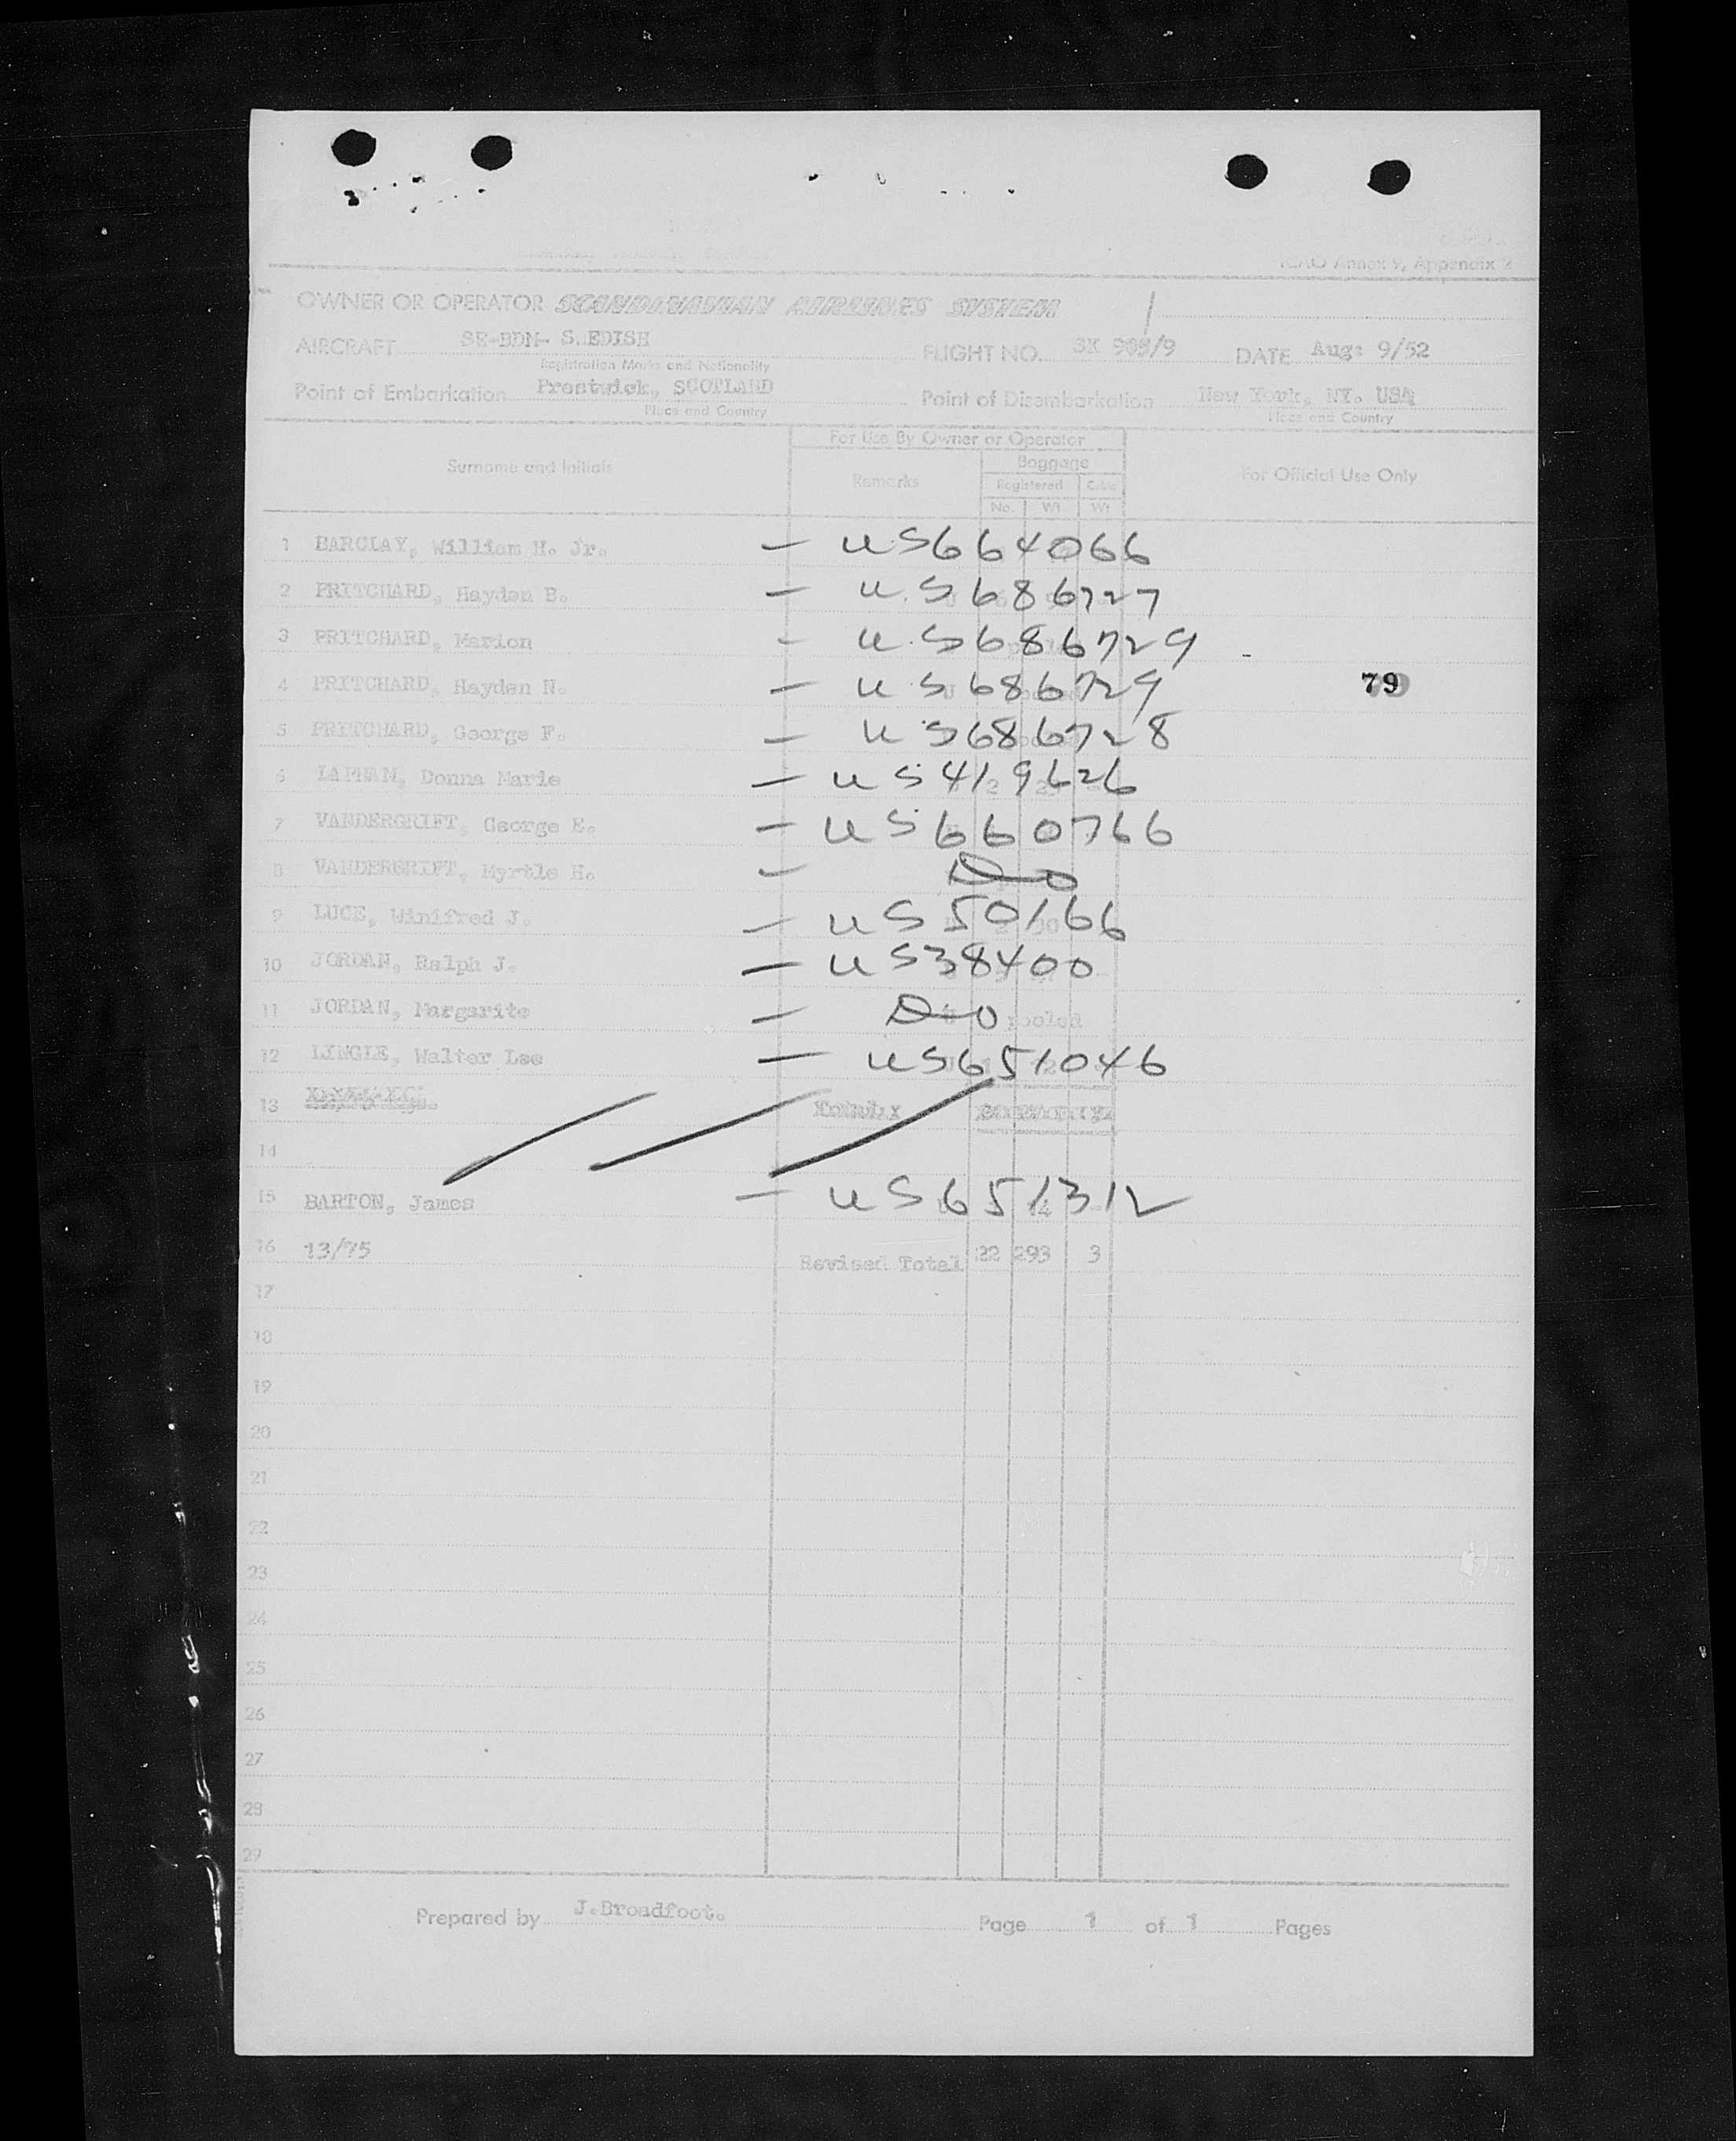 ICAO Annex 9, Appendix 2
OWNER OR OPERATOR SCANDINAVIAN AIRLINES SYSTEM
AIRCRAFT SE-BDN- S.EDISH FLIGHT NO. SK 905/9 DATE Aug: 9/52
Registration Marks and Nationality
Point of Embarkation Prestwick, SCOTLAND Point of Disembarkation New York, NY. USA
Place and Country Place and Country
For Use By Owner or Operator
Surname and Initials Remarks Baggage For Official Use Only
Registered Cabin
No. Wt Wt
1 BARCLAY, William H. Jr. — US664066
2 PRITCHARD, Hayden B. — U.S686727
3 PRITCHARD, Marion - U.S686729
4 PRITCHARD, Hayden N. — US686729 79
5 PRITCHARD, George F. — US686728
6 LAPHAM, Donna Marie — US419626
7 VANDERGRIFT, George E. — US660766
8 VANDERGRIFT, Myrtle H. — D-0
9 LUCE, Winifred J. — US50166
10 JORDAN, Ralph J. — US38400
11 JORDAN, Margarite — D-0 pooled
12 LINGLE, Walter Lee — US651046
13
14
15 BARTON, James — US651312
16 13/75 Revised Total 22 293 3
17
18
19
20
21
22
23
24
25
26
27
28
29
Prepared by J.Broadfoot. Page 1 of 1 Pages